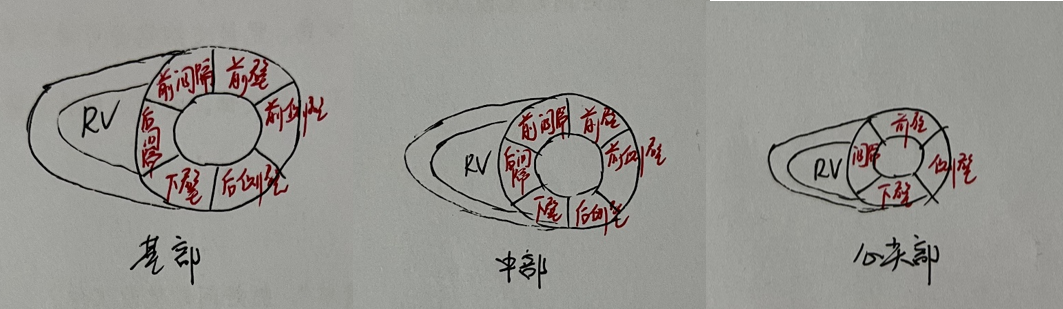 前间隔 前壁
RV 后间隔 前侧壁
下壁 后侧壁
基部
前间隔 前壁
RV 后间隔 前侧壁
下壁 后侧壁
中部
前壁
RV 间隔 侧壁
下壁
心尖部